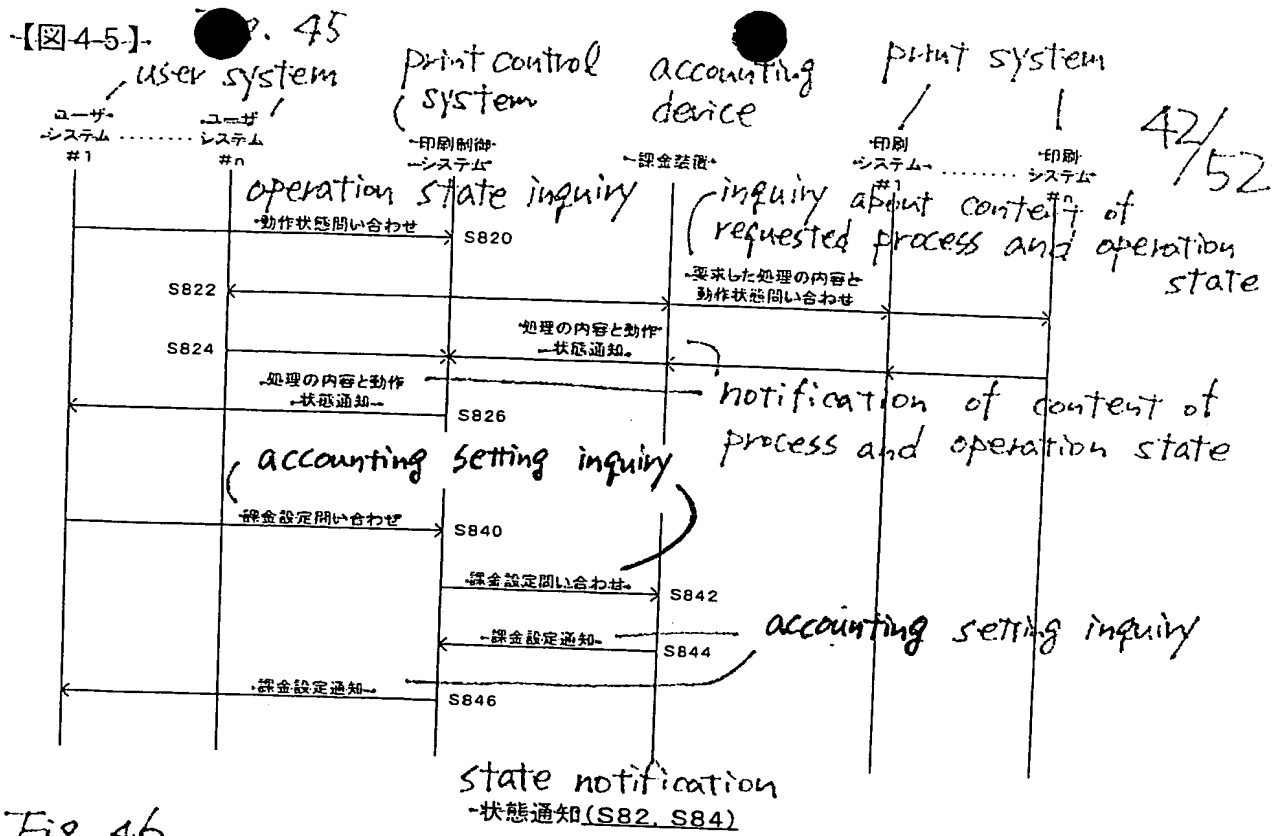 【図45】
. 45
user system
print control
system
accounting
device
print system
42/52
ユーザ
システム
#1
ユーザ
システム
#n
印刷制御
システム
課金装置
印刷
システム
#1
印刷
システム
#n
operation state inquiry
inquiry about content of
requested process and operation
state
動作状態問い合わせ
S820
要求した処理の内容と
動作状態問い合わせ
S822
処理の内容と動作
状態通知
S824
処理の内容と動作
状態通知
S826
notification of content of
process and operation state
accounting setting inquiry
課金設定問い合わせ
S840
課金設定問い合わせ
S842
課金設定通知
S844
accounting setting inquiry
課金設定通知
S846
state notification
状態通知(S82, S84)
Fig. 46